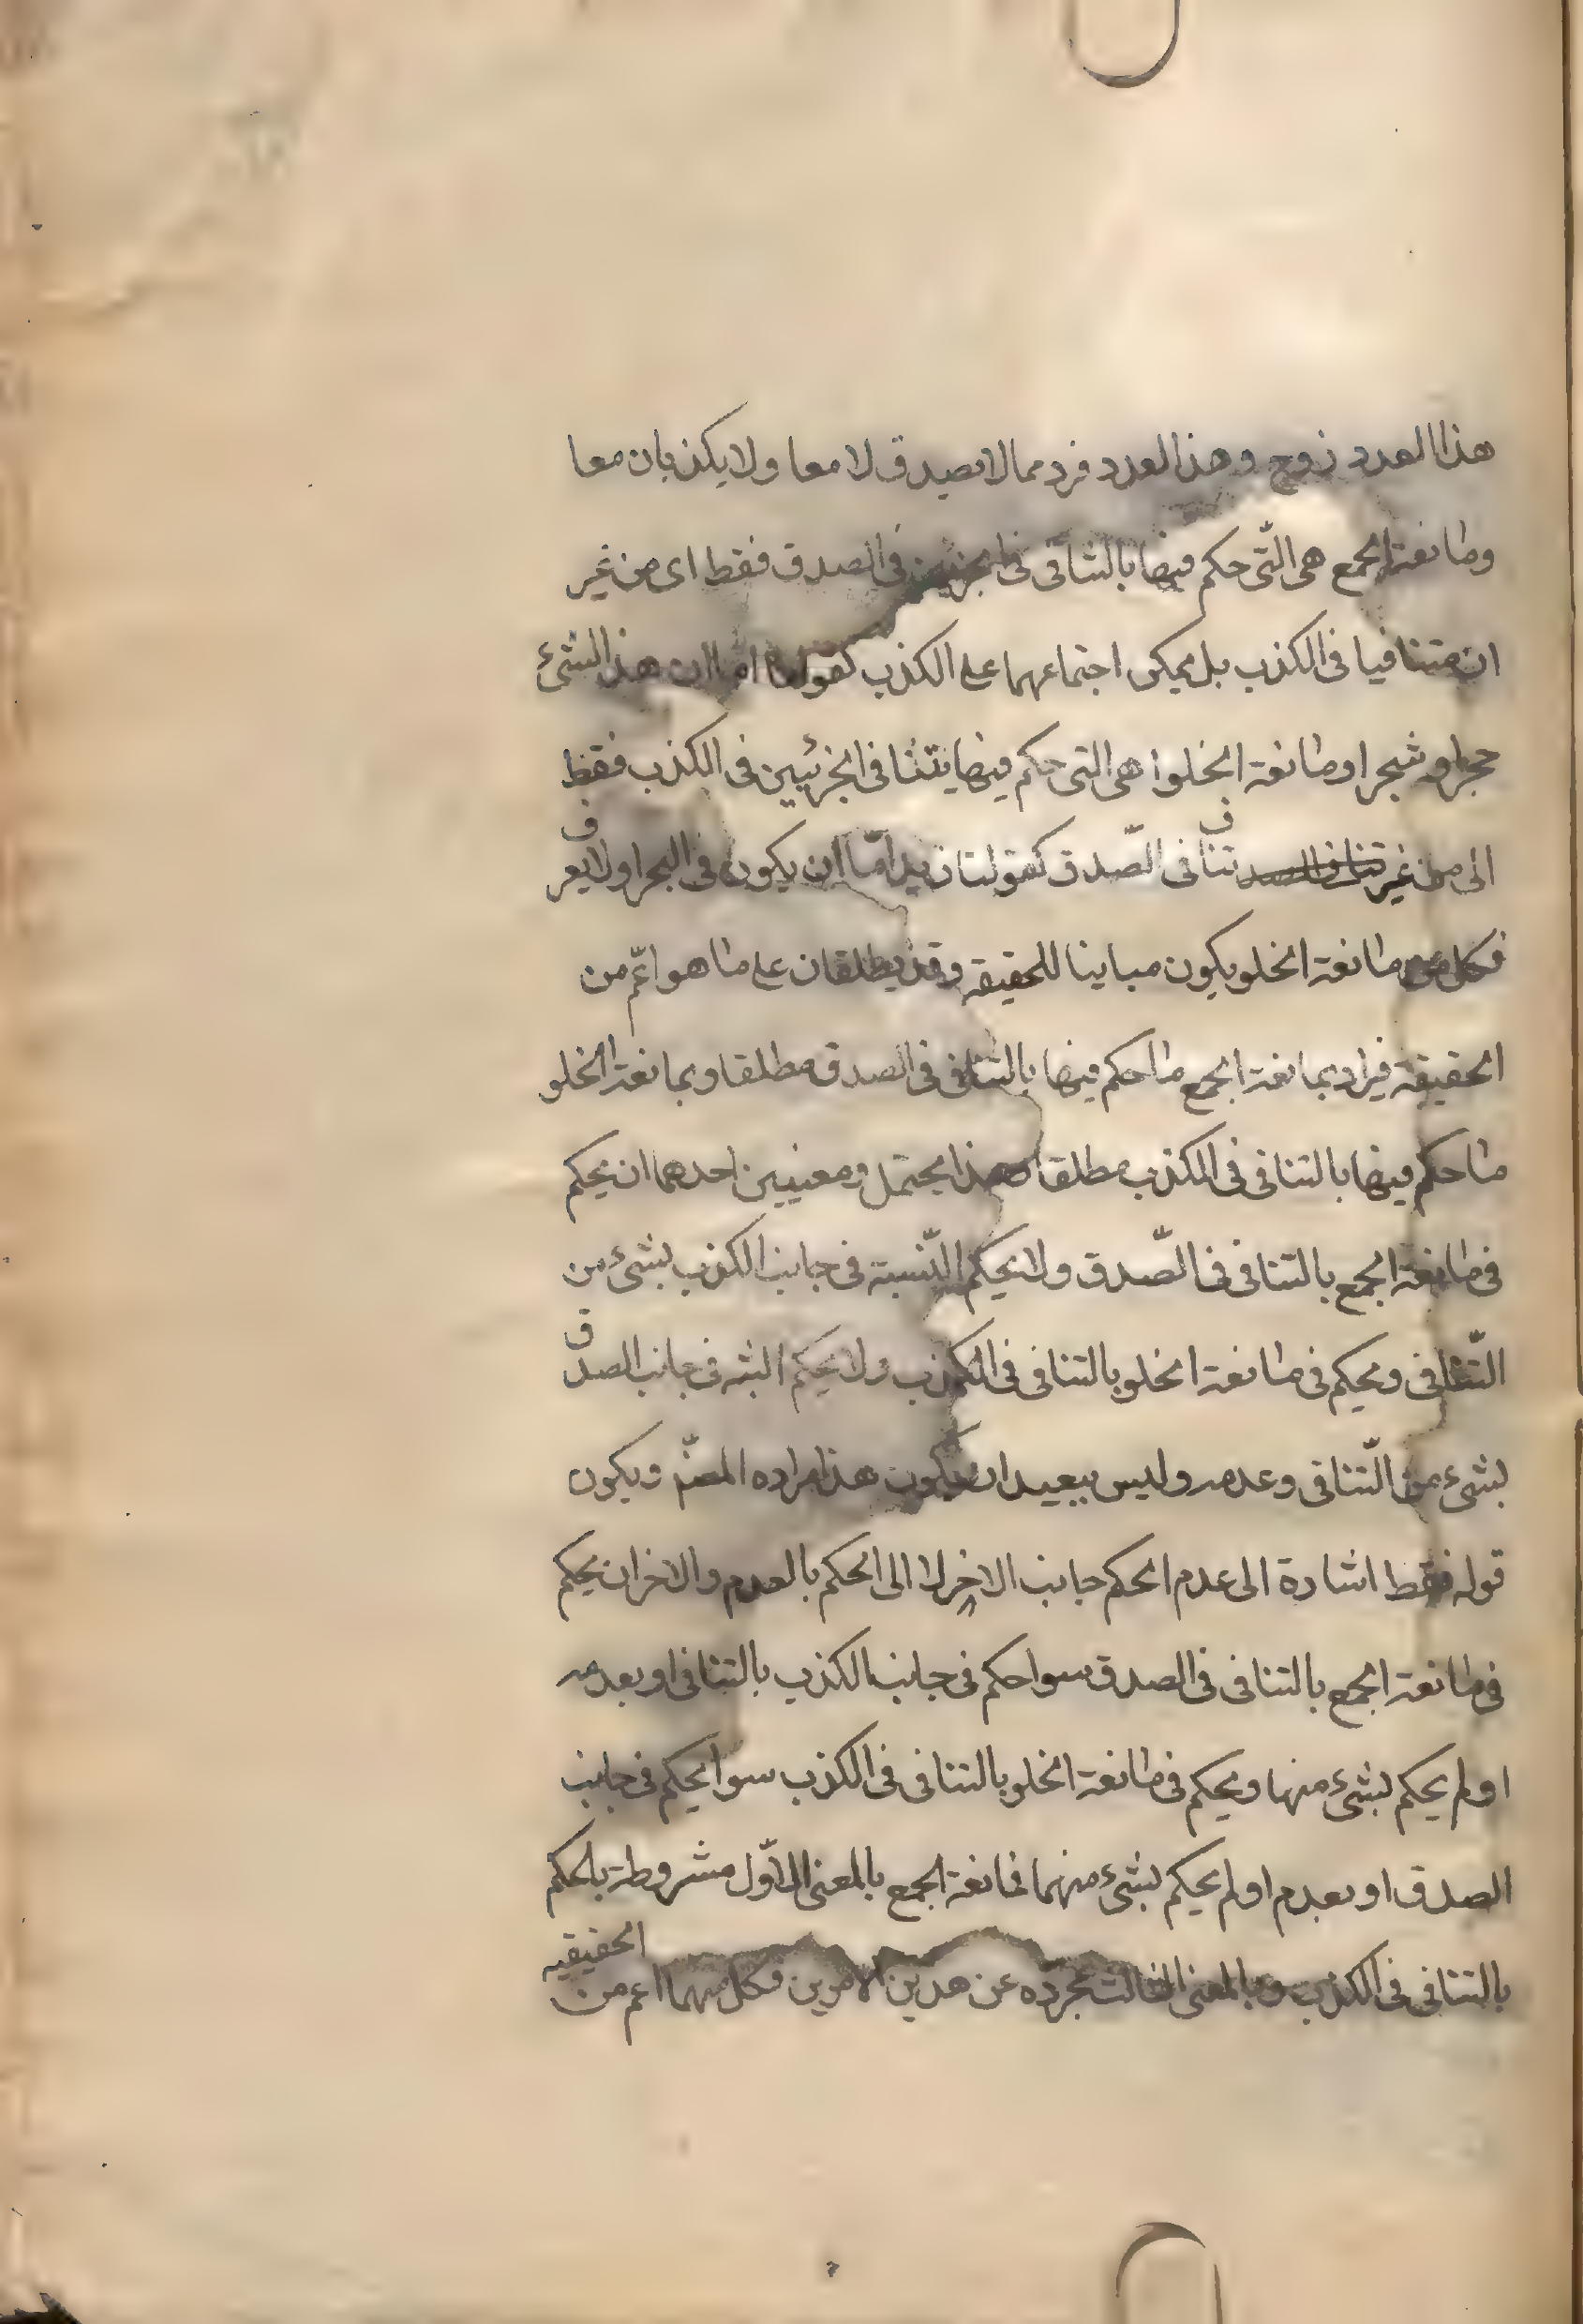 هذا العدد زوج وهذا العدد فرد مما لا يصدق لا معا ولا يكذبان معا
ومانعة الجمع هى التّى حكم فيها بالتنافى فى الجزئين فى الصدق فقط اى من غير
ان متنافيا فى الكذب بل يمكن اجتماعهما على الكذب كقولنا اما ان هذا الشئ
حجرا و شجرا ومانعة الخلوا هى التى حكم فيها يتنافى الجزئيين فى الكذب فقط
الى من غير تنافى الصّدق كقولنا زيد امّا ان يكون فى البحر او لا يغرق
فكل من مانعة الخلو يكون مباينا للحقيقة وقد يطلقان على ما هو اعمّ من
الحقيقة فيراد بمانعة الجمع ما حكم فيها بالتنافى فى الصدق مطلقا وبمانعة الخلو
ما حكم فيها بالتنافى فى الكذب مطلقا وهذا يحتمل ومعنيين احدهما ان يحكم
فى مانعة الجمع بالتنافى فى الصّدق ولا يحكم النّسبة فى جانب الكذب بشئ من
التّنافى ويحكم فى مانعة الخلو بالتنافى فى الكذب ولا يحكم البتة فى جانب الصدق
بشئ من التّنافى وعدمه وليس ببعيد ان يكون هذا مراده المصنّ ويكون
قوله فقط اشارة الى عدم الحكم جانب الاخر لا الى الحكم بالعدم والاخر ان يحكم
فى مانعة الجمع بالتنافى فى الصدق سوا حكم فى جانب الكذب بالتنافى او بعدمه
او لم يحكم بشئ منها ويحكم فى مانعة الخلو بالتنافى فى الكذب سوا يحكم فى جانب
الصدق او بعدم او لم يحكم بشئ منهما فمانعة الجمع بالمعنى الاوّل مشروطة بالحكم
بالتنافى فى الكذب وبالمعنى الثالث مجرده عن هدين الامرين فكل منهما اعم من الحقيقيه